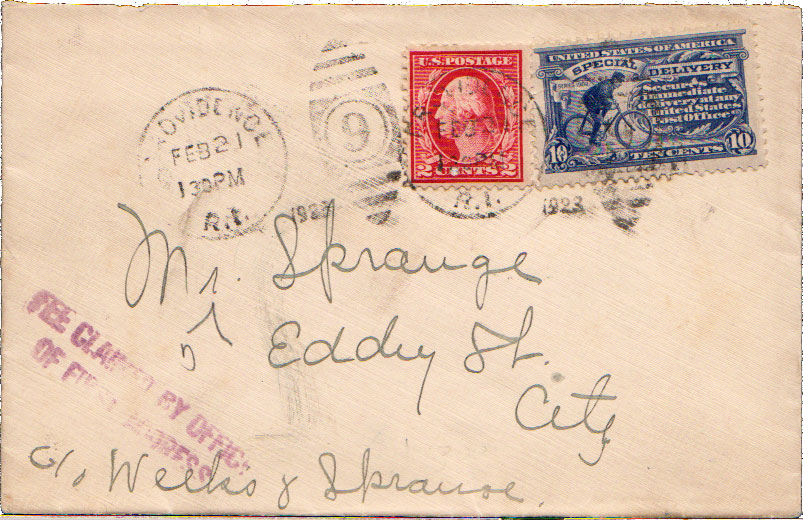 PROVIDENCE
FEB 21
1 30 PM
R.I.
1923
9
U.S. POSTAGE
2 CENTS 2
UNITED STATES OF AMERICA
SPECIAL DELIVERY
Secures
immediate
delivery at any
United States
Post Office
10 TEN CENTS 10
FEB
R.I.
1923
Mr. Sprange
Eddy St.
City
FEE CLAIMED BY OFFICE
OF FIRST ADDRESS
c/o Weeks &